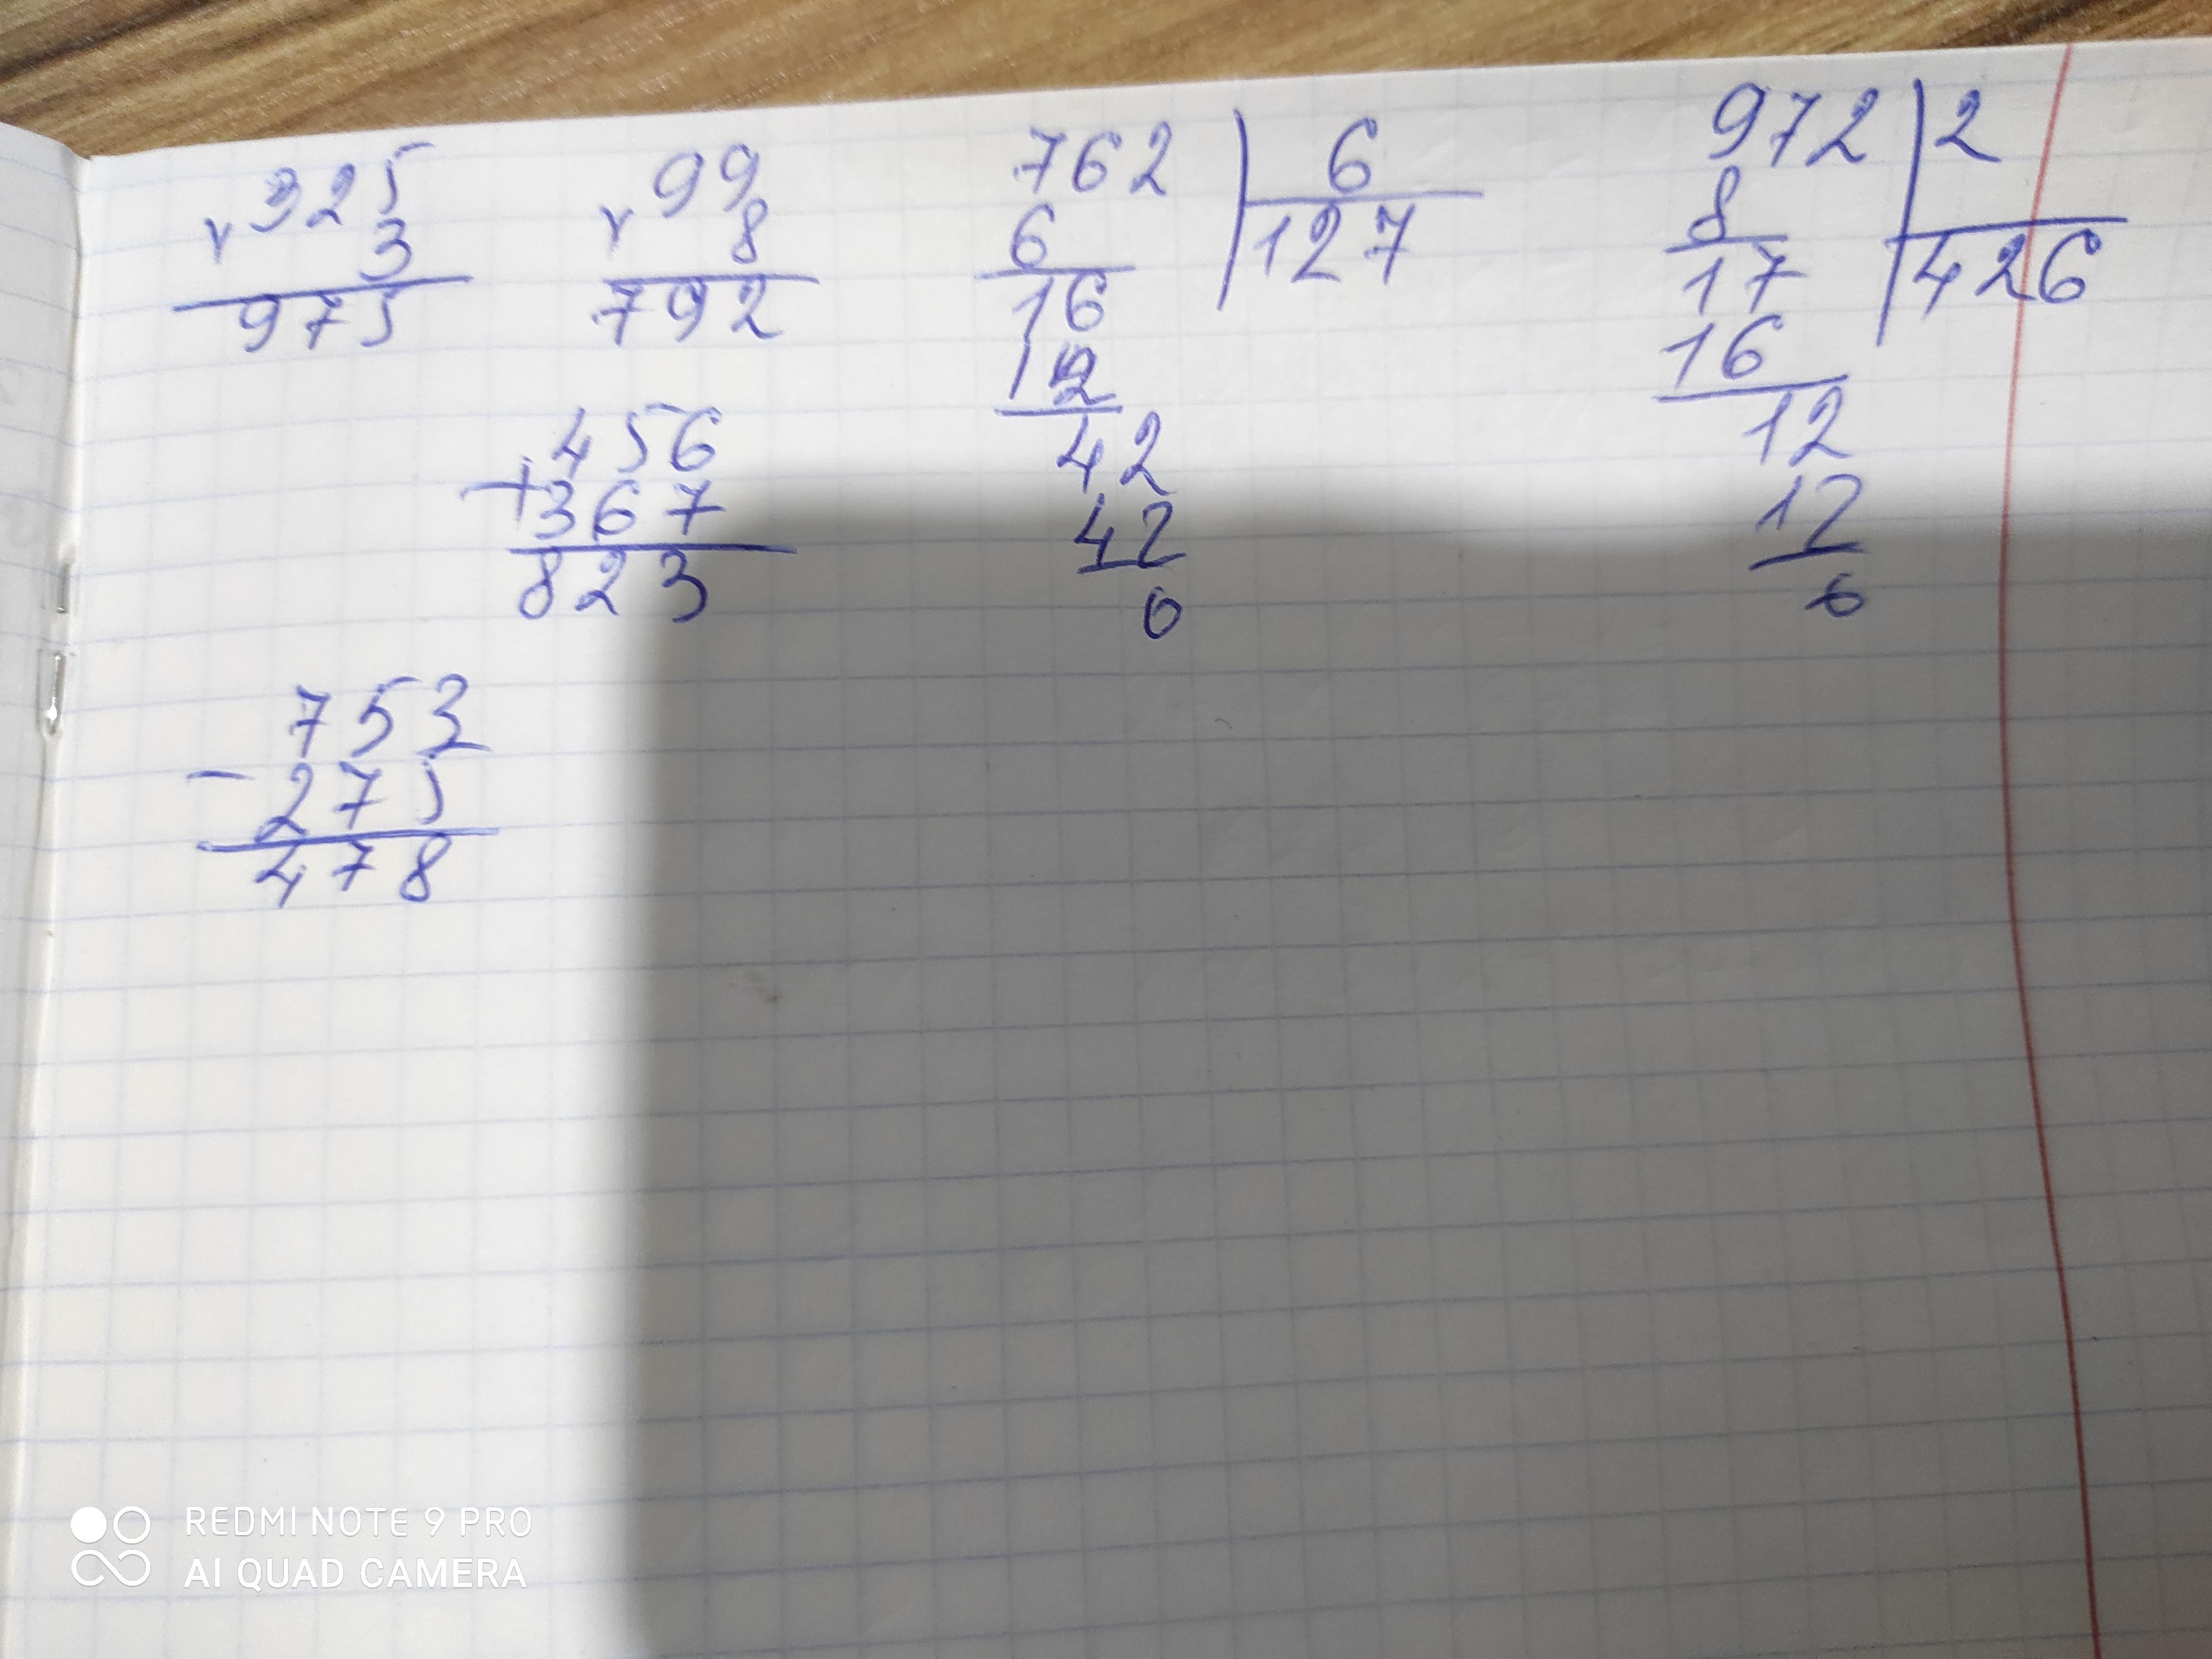 325
× 3
975
99
× 8
792
762 | 6
6 | 127
16
12
42
42
0
972 | 2
8 | 426
17
16
12
12
0
456
+367
823
753
- 275
478
REDMI NOTE 9 PRO
AI QUAD CAMERA